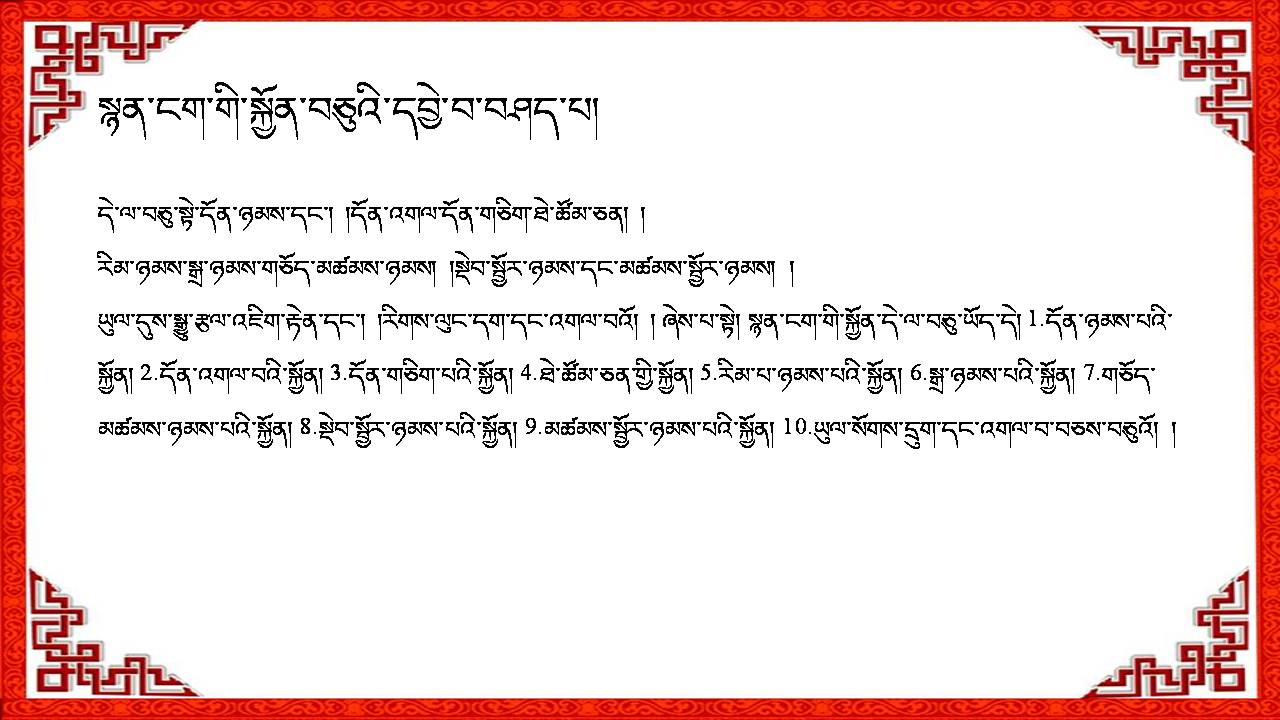 སྙན་ངག་གི་སྐྱོན་བཅུའི་དབྱེ་བ་བཤད་པ།
དེ་ལ་བཅུ་སྟེ་དོན་ཉམས་དང་། །དོན་འགལ་དོན་གཅིག་ཐེ་ཚོམ་ཅན། །
རིམ་ཉམས་སྒྲ་ཉམས་གཅོད་མཚམས་ཉམས། །སྡེབ་སྦྱོར་ཉམས་དང་མཚམས་སྦྱོར་ཉམས། །
ཡུལ་དུས་སྒྱུ་རྩལ་འཇིག་རྟེན་དང་། །རིགས་ལུང་དག་དང་འགལ་བའོ། ། ཞེས་པ་སྟེ། སྙན་ངག་གི་སྐྱོན་དེ་ལ་བཅུ་ཡོད་དེ། 1.དོན་ཉམས་པའི་
སྐྱོན། 2.དོན་འགལ་བའི་སྐྱོན། 3.དོན་གཅིག་པའི་སྐྱོན། 4.ཐེ་ཚོམ་ཅན་གྱི་སྐྱོན། 5.རིམ་པ་ཉམས་པའི་སྐྱོན། 6.སྒྲ་ཉམས་པའི་སྐྱོན། 7.གཅོད་
མཚམས་ཉམས་པའི་སྐྱོན། 8.སྡེབ་སྦྱོར་ཉམས་པའི་སྐྱོན། 9.མཚམས་སྦྱོར་ཉམས་པའི་སྐྱོན། 10.ཡུལ་སོགས་དྲུག་དང་འགལ་བ་བཅས་བཅུའོ། །